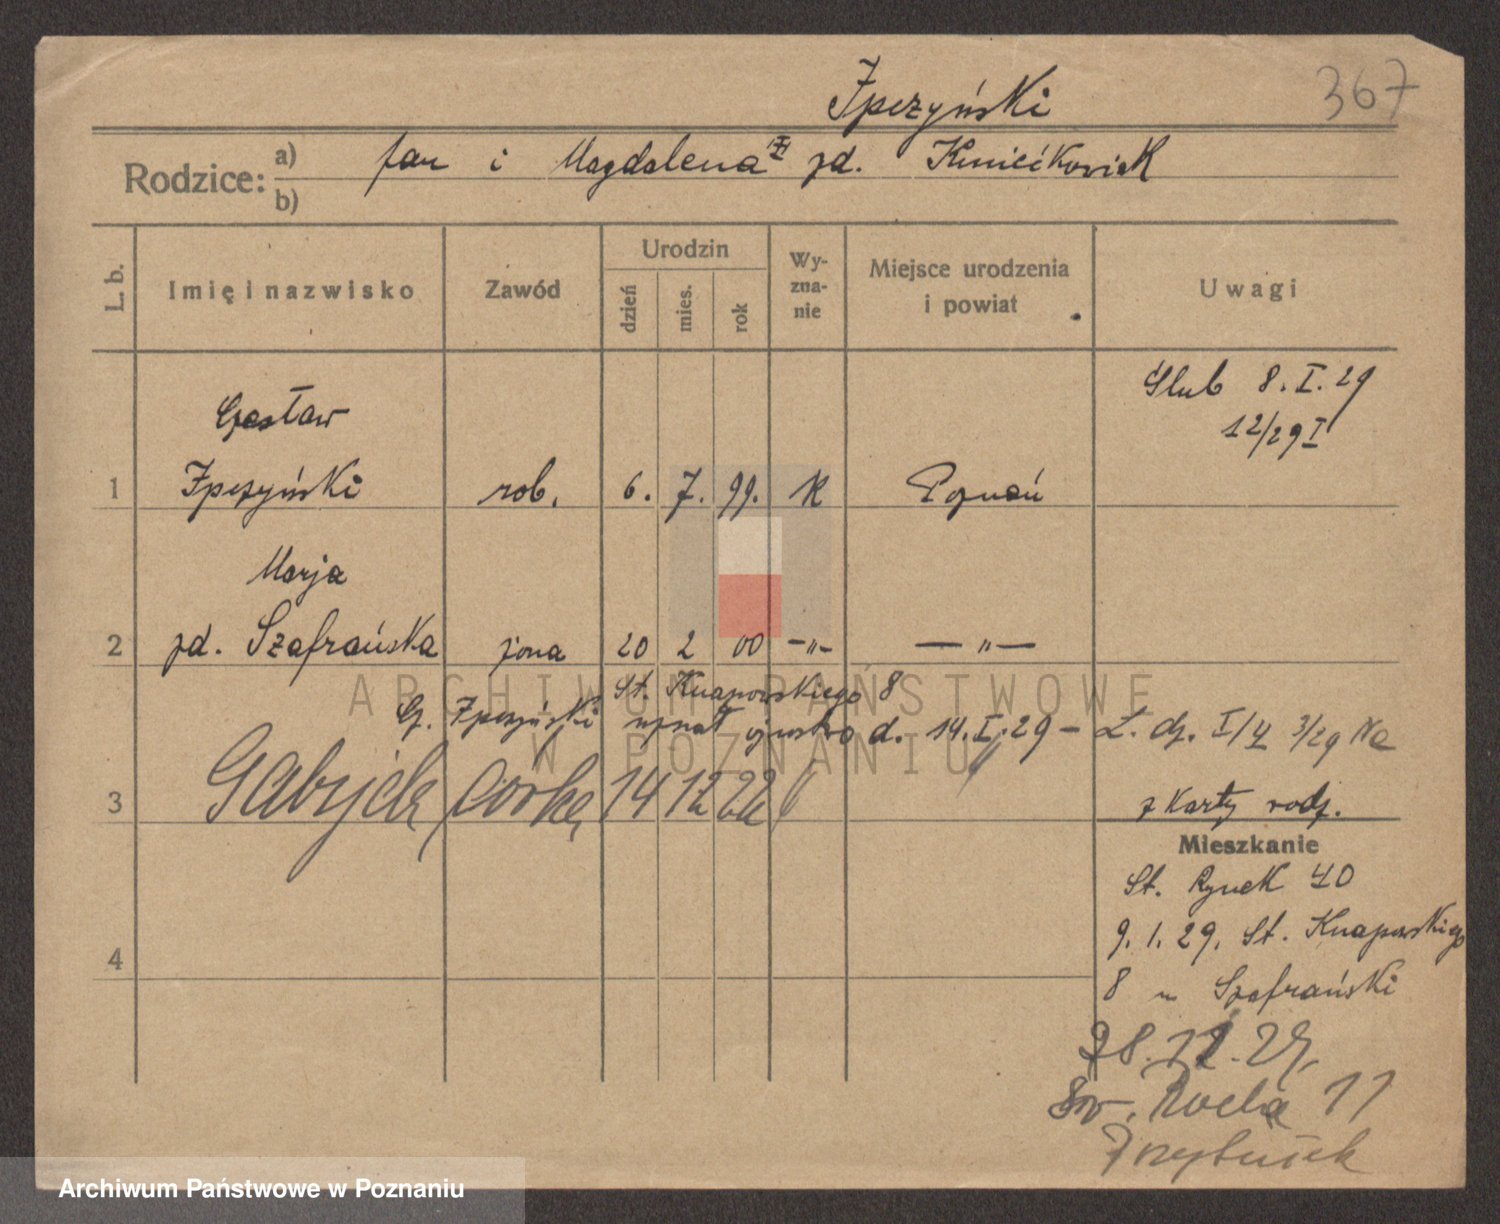 Ipczyński
367
Rodzice: a) Jan i Magdalena zd. Kmiećkowiak
b)
L. b.
Imię i nazwisko
Zawód
Urodzin
dzień
mies.
rok
Wy-
zna-
nie
Miejsce urodzenia
i powiat
Uwagi
Ślub 8. I. 29
12/29 I
Czesław
1 Ipczyński rob. 6. 7. 99. K Poznań
Marja
2 zd. Szafrańska żona 20 2 00 -„- -„-
St. Knapowskiego 8
Cz. Ipczyński uznał ojcostwo d. 14. I. 29 - L. dz. I/4 3/29
3 córka 14 12
z karty rodz.
Mieszkanie
St. Rynek 40
9. 1. 29. St. Knapowskiego
4
8 u Szafrański
28. 12. 29.
Św. Rocha 11
ARCHIWUM PAŃSTWOWE
W POZNANIU
Archiwum Państwowe w Poznaniu